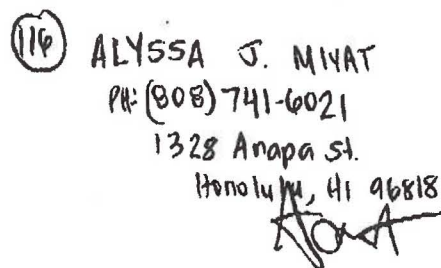 116 ALYSSA J. MIYAT
PH: (808) 741-6021
1328 Anapa St.
Honolulu, HI 96818